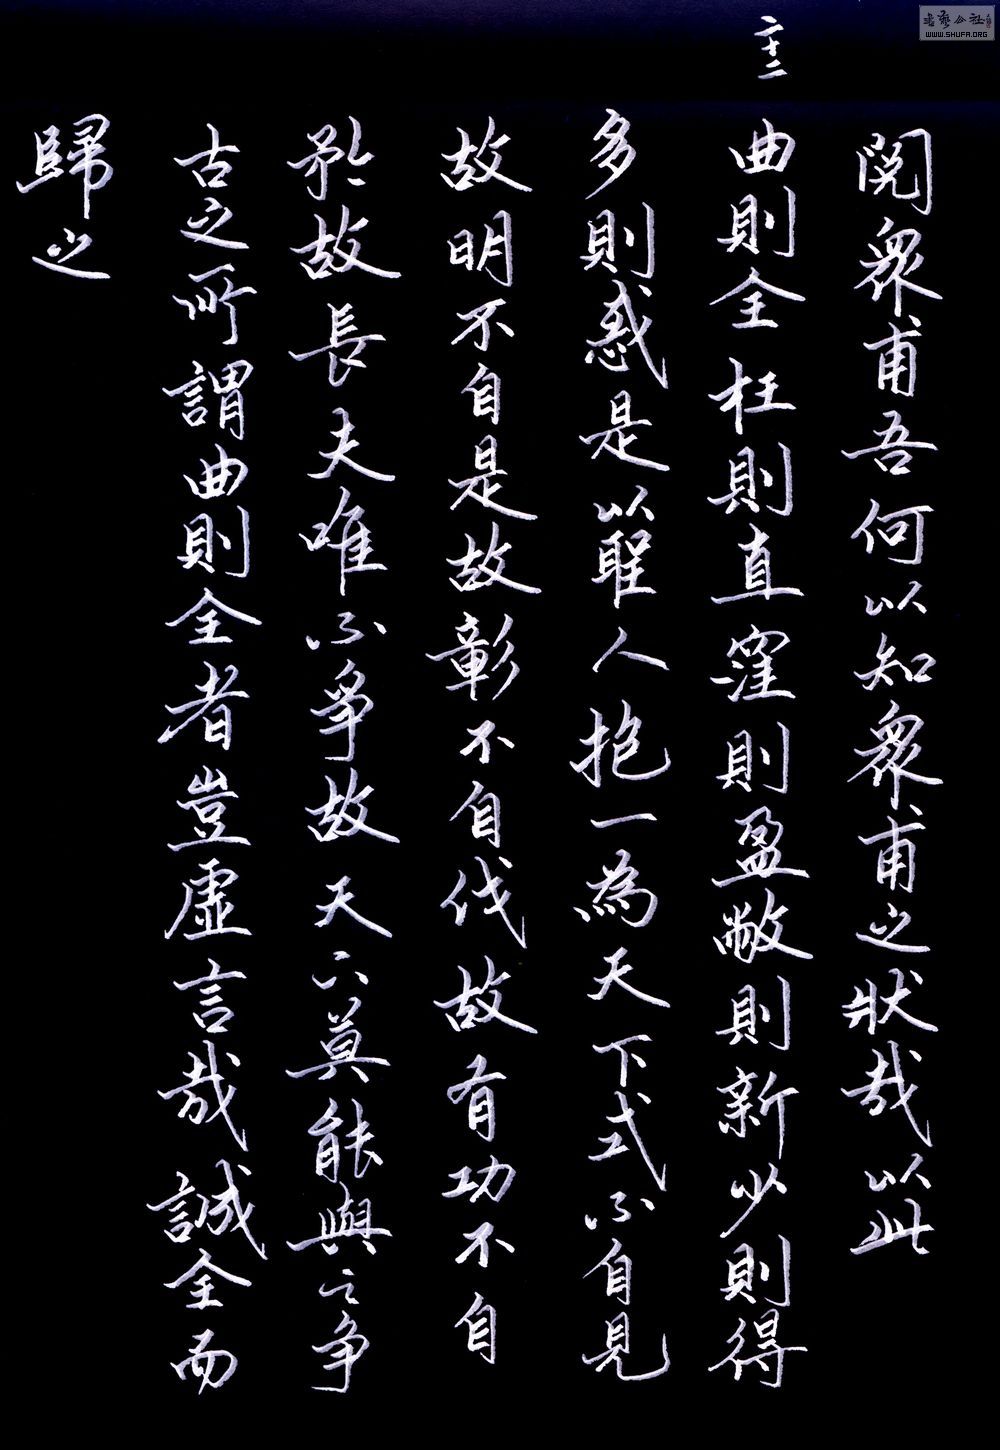 閱衆甫吾何以知衆甫之狀哉以此
二十二
曲則全枉則直窪則盈敝則新少則得
多則惑是以聖人抱一為天下式不自見
故明不自是故彰不自伐故有功不自
矜故長夫唯不爭故天下莫能與之争
古之所謂曲則全者豈虛言哉誠全而
歸之
WWW.SHUFA.ORG